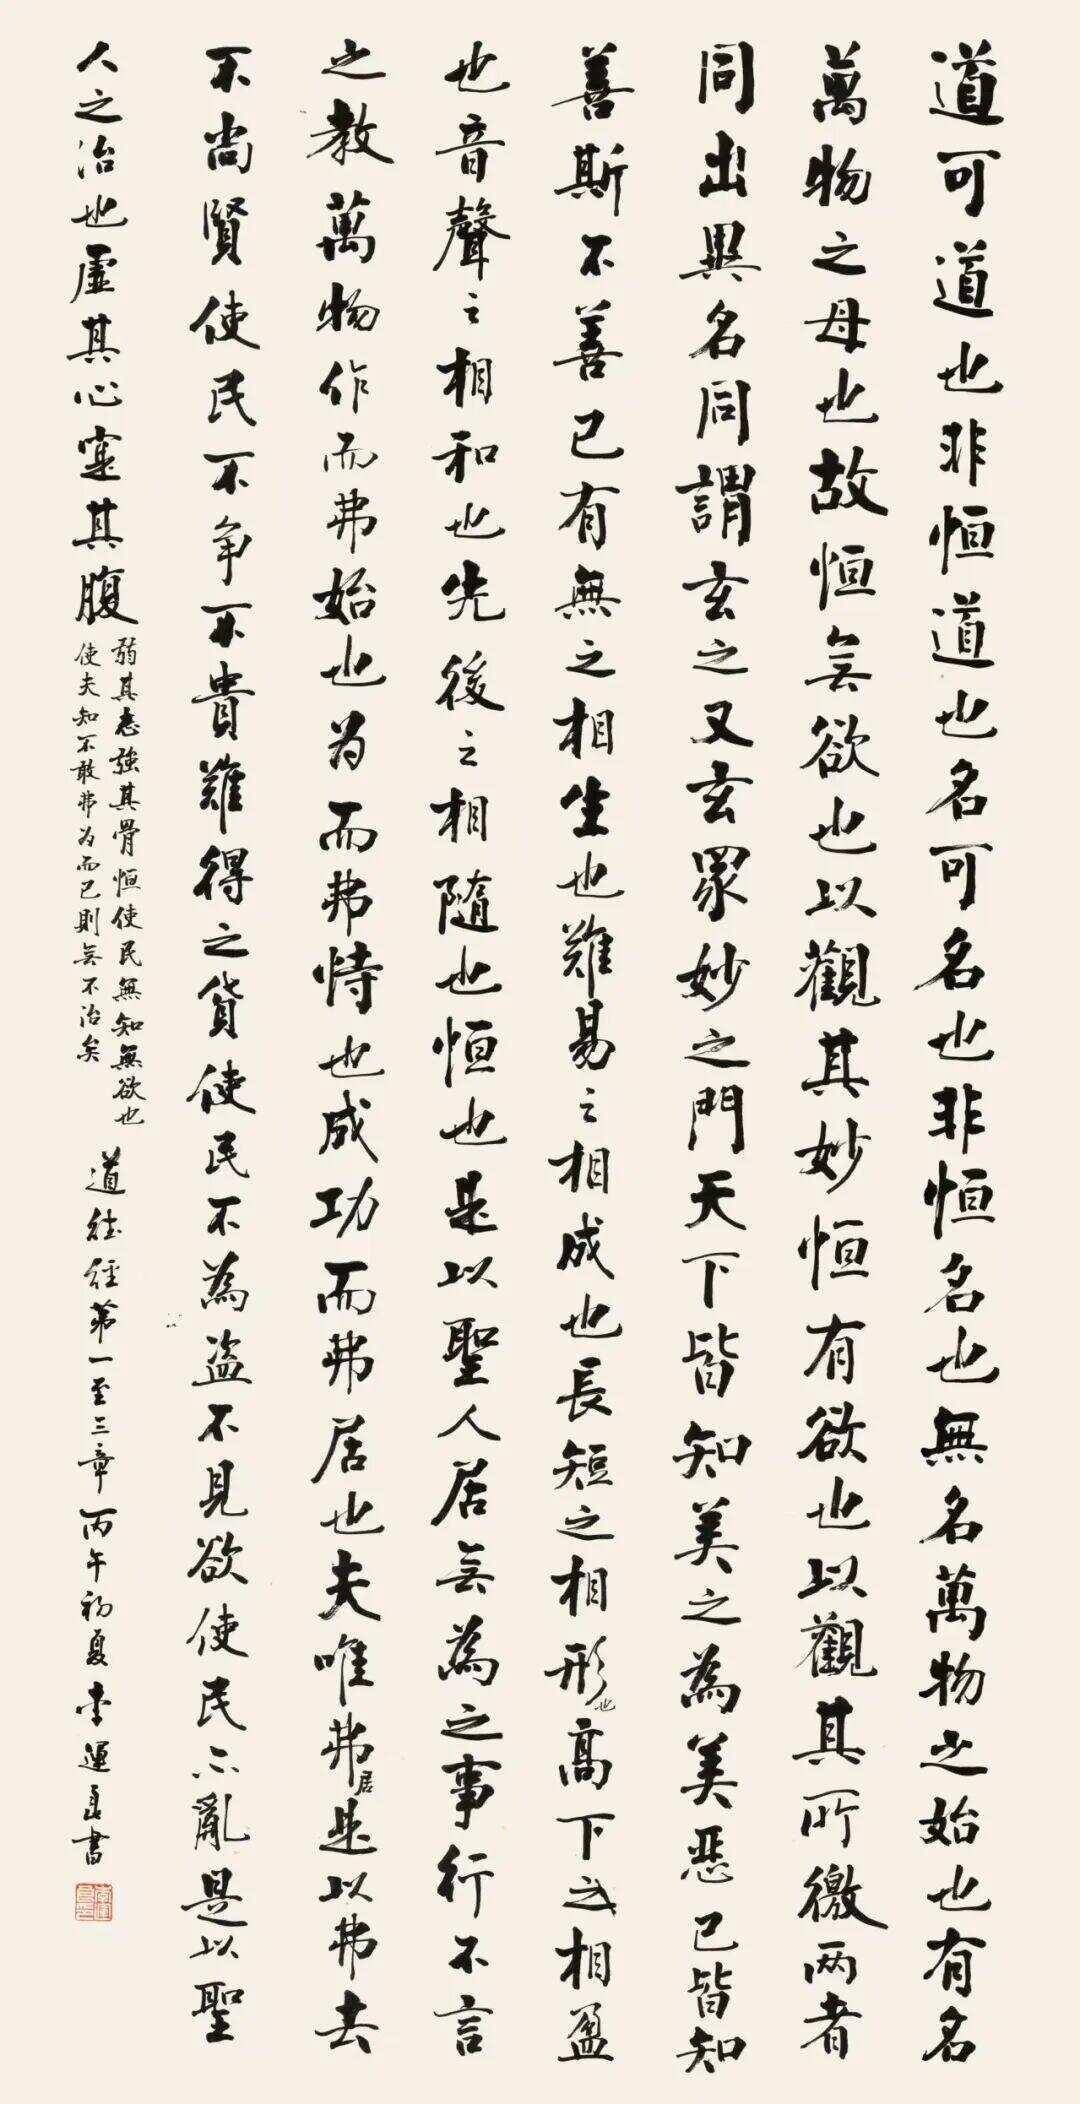 道可道也非恒道也名可名也非恒名也無名萬物之始也有名
萬物之母也故恒無欲也以觀其妙恒有欲也以觀其所徼两者
同出異名同謂玄之又玄眾妙之門天下皆知美之為美惡已皆知
善斯不善已有無之相生也難易之相成也長短之相形也高下之相盈
也音聲之相和也先後之相隨也恒也是以聖人居無為之事行不言
之教萬物作而弗始也为而弗恃也成功而弗居也夫唯弗居是以弗去
不尚賢使民不争不貴難得之貨使民不為盜不見欲使民不亂是以聖
人之治也虛其心實其腹
弱其志強其骨恒使民無知無欲也
使夫知不敢弗为而已則無不治矣
道德經第一至三章丙午初夏李運良書